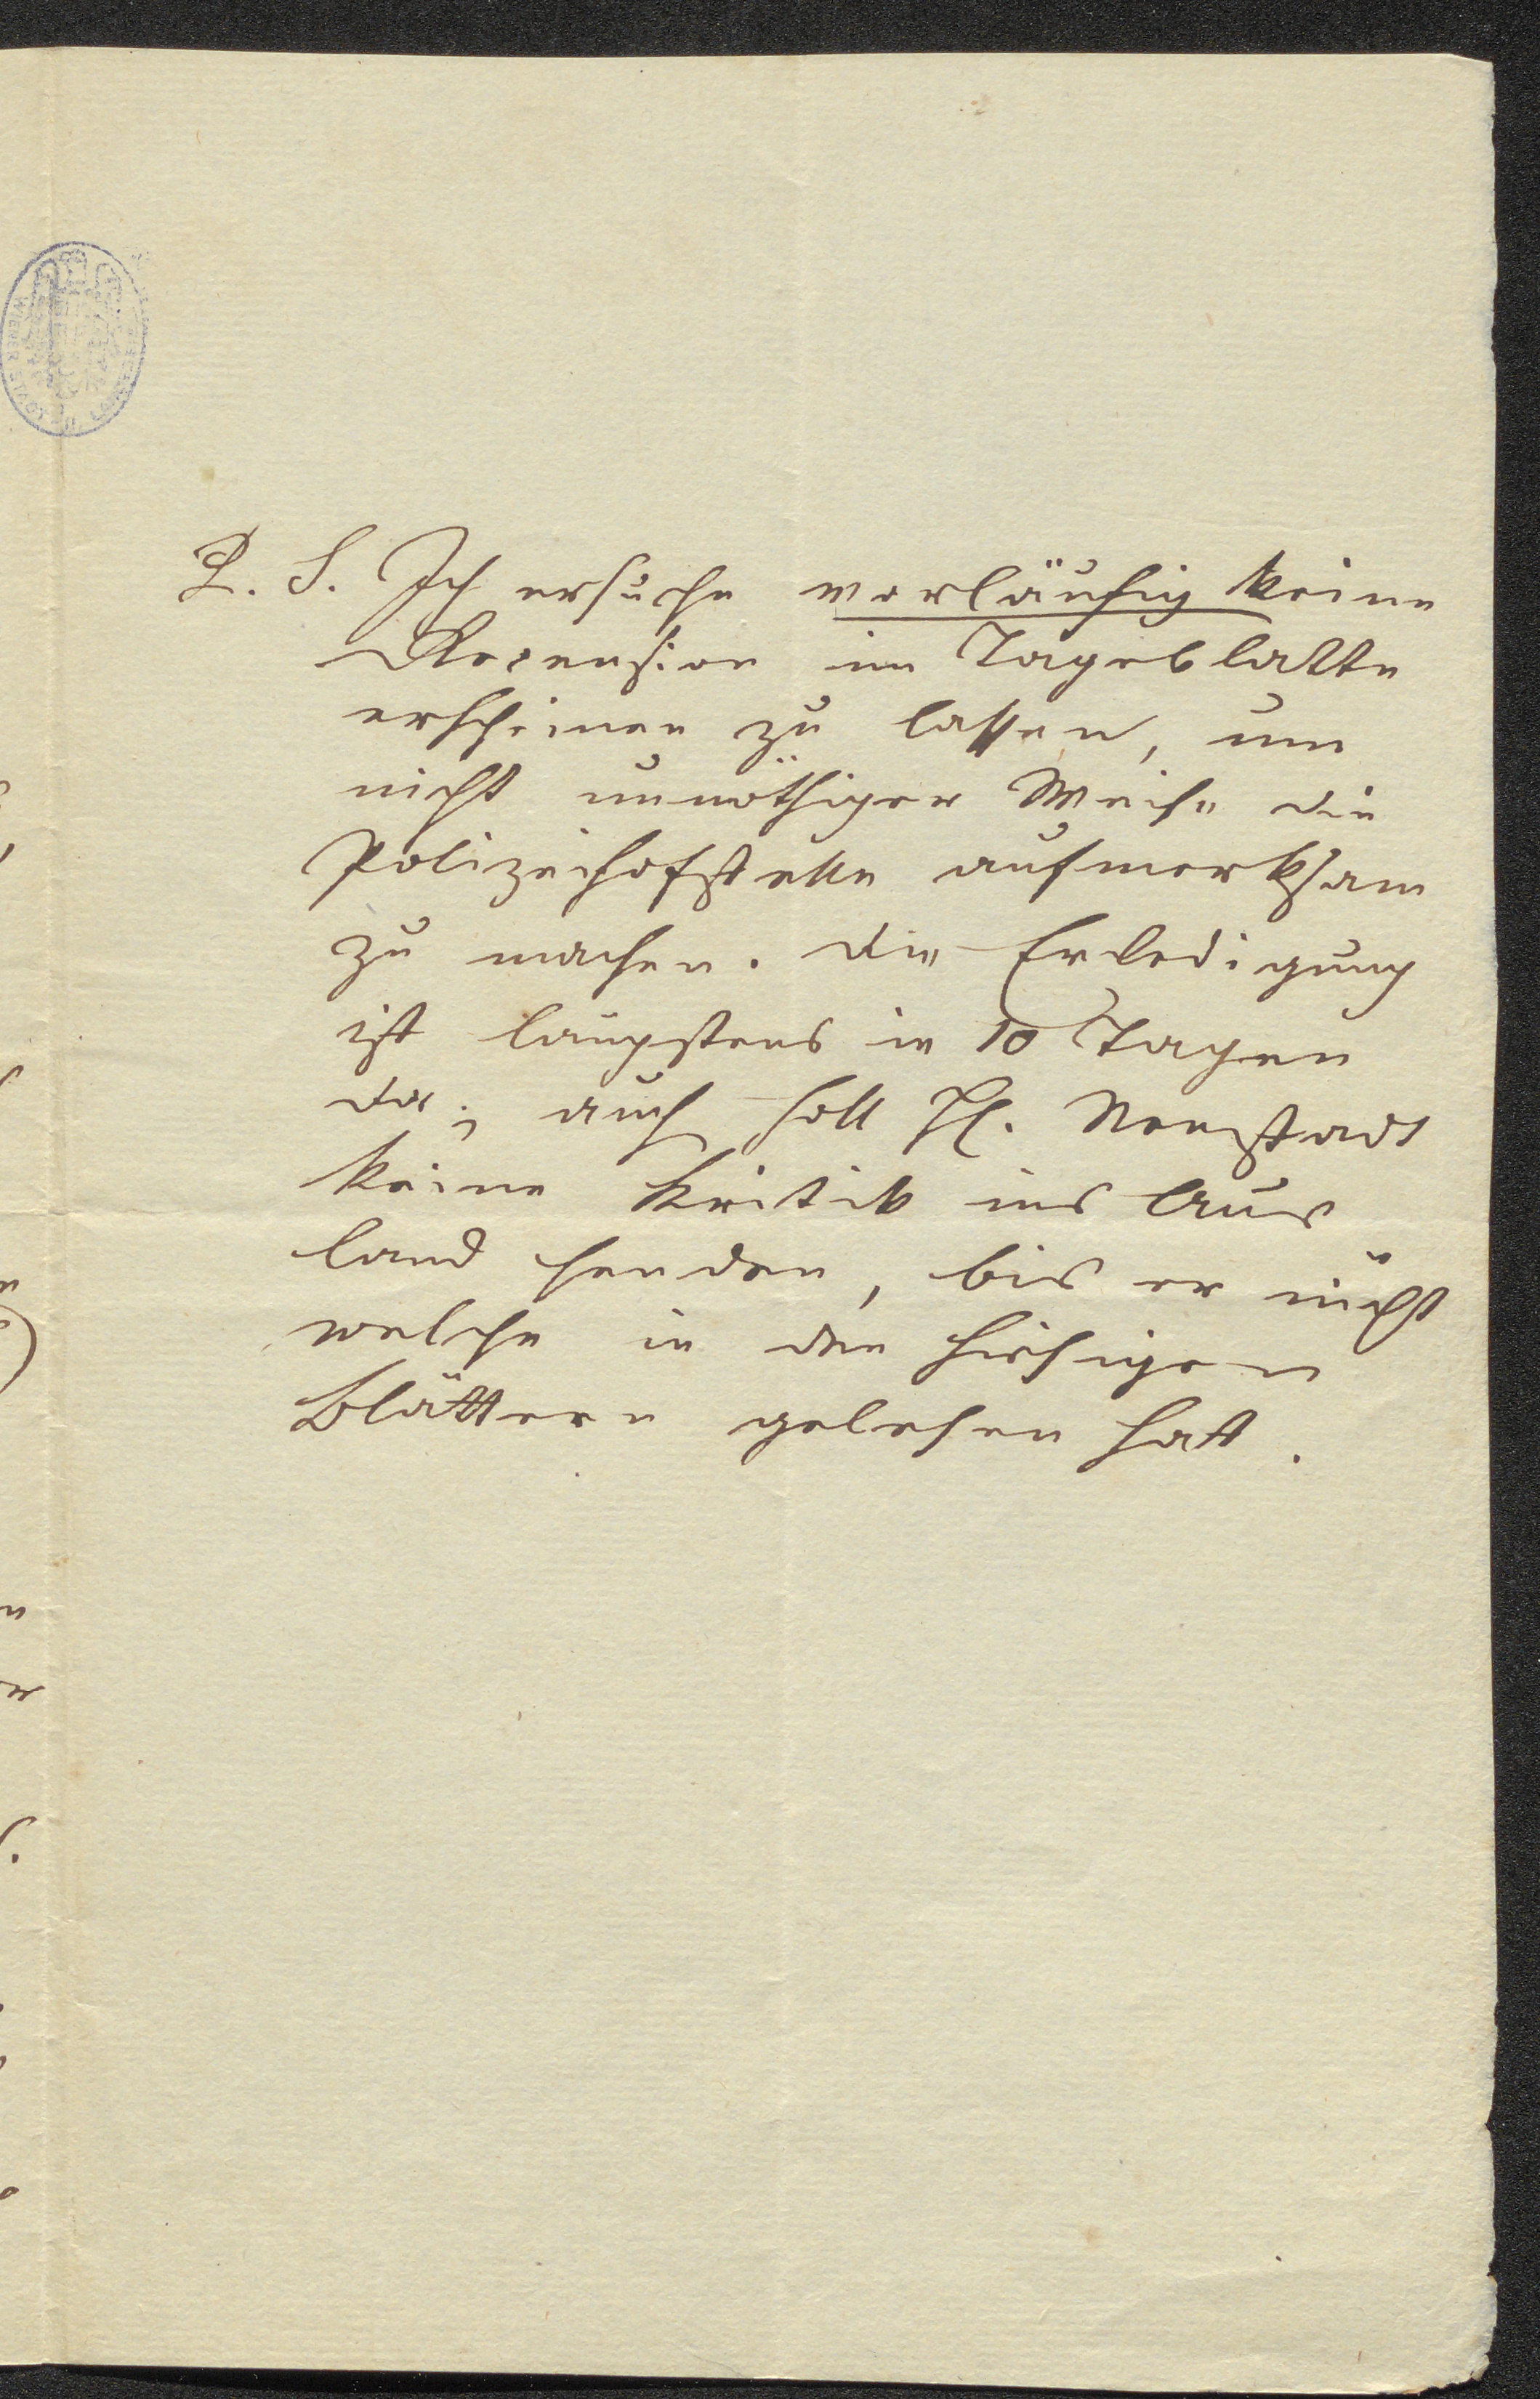 P. S. Ich ersuche vorläufig keine
Recension im Tageblatte
erscheinen zu lassen, um
nicht unnöthiger Weise die
Polizeihofstelle aufmerksam
zu machen. Die Erledigung
ist längstens in 10 Tagen
da; auch soll H. Neustadt
keine Kritik ins Aus
land senden, bis er nicht
welche in den hiesigen
Blättern gelesen hatt.